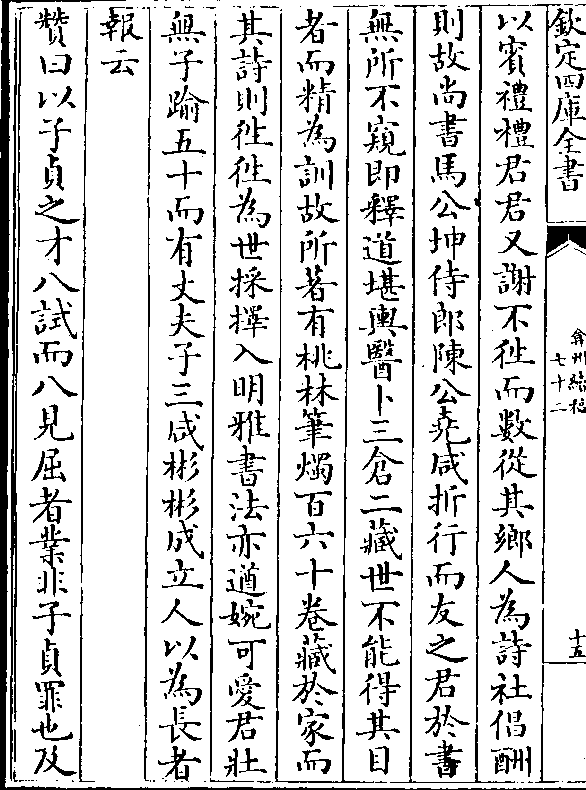 欽定四庫全書
弇州續稿
七十二
十五
以賓禮禮君君又謝不徃而數從其鄉人為詩社倡酬
則故尚書馬公坤侍郎陳公堯咸折行而友之君於書
無所不窺即釋道堪輿醫卜三倉二藏世不能得其目
者而精為訓故所著有桃林筆燭百六十卷藏於家而
其詩則徃徃為世採擇入明雅書法亦遒婉可愛君壯
無子踰五十而有丈夫子三咸彬彬成立人以為長者
報云
贊曰以子貞之才八試而八見屈者業非子貞罪也及